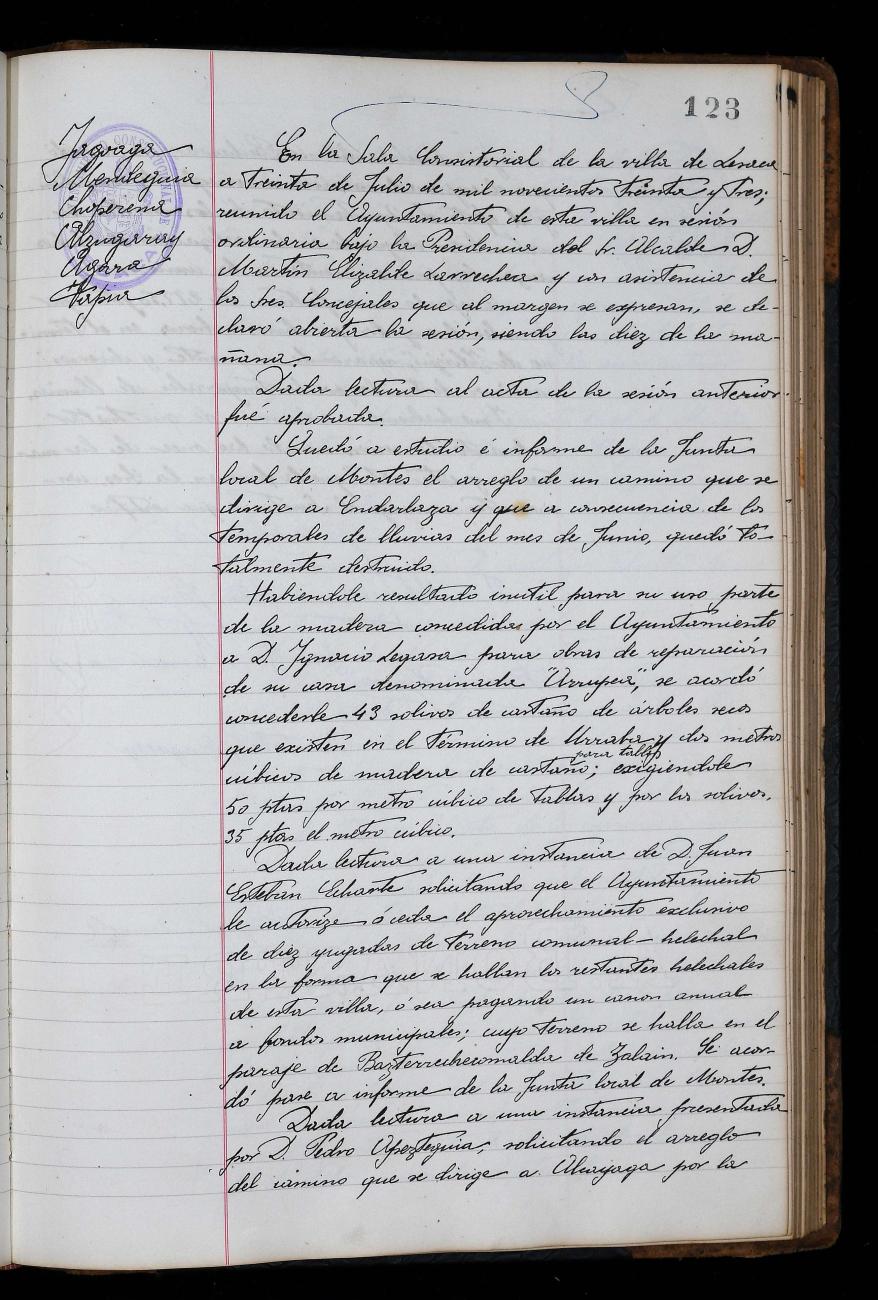 123
Jagoaga
Mendeguia
Choperena
Alzugaray
Agara
Tapia
En la Sala Consistorial de la villa de Lesaca
a treinta de Julio de mil novecientos treinta y tres;
reunido el Ayuntamiento de esta villa en sesión
ordinaria bajo la Presidencia del Sr. Alcalde D.
Martín Elizalde Larrechea y con asistencia de
los Sres. Concejales que al margen se expresan, se de-
claró abierta la sesión, siendo las diez de la ma-
ñana.
Dada lectura al acta de la sesión anterior
fué aprobada.
Quedó a estudio é informe de la Junta
local de Montes el arreglo de un camino que se
dirige a Endarlaza y que a consecuencia de los
temporales de lluvias del mes de Junio, quedó to-
talmente destruido.
Habiendole resultado inutil para su uso parte
de la madera concedida por el Ayuntamiento
a D. Ignacio Legasa para obras de reparación
de su casa denominada "Urrupea", se acordó
concederle 43 solivos de castaño de árboles secos
que existen en el término de Urraba y dos metros
para tablas
cúbicos de madera de castaño; exigiendole
50 ptas por metro cúbico de tablas y por los solivos,
35 ptas el metro cúbico.
Dada lectura a una instancia de D. Juan
Esteban Echarte solicitando que el Ayuntamiento
le autorize ó ceda el aprovechamiento exclusivo
de diez yugadas de terreno comunal - helechal
en la forma que se hallan los restantes helechales
de esta villa, ó sea pagando un canon anual
a fondos municipales; cuyo terreno se halla en el
paraje de Bazterrechecomalda de Zalain. Se acor-
dó pase a informe de la Junta local de Montes.
Dada lectura a una instancia presentada
por D. Pedro Apezteguia, solicitando el arreglo
del camino que se dirige a Alcayaga por la